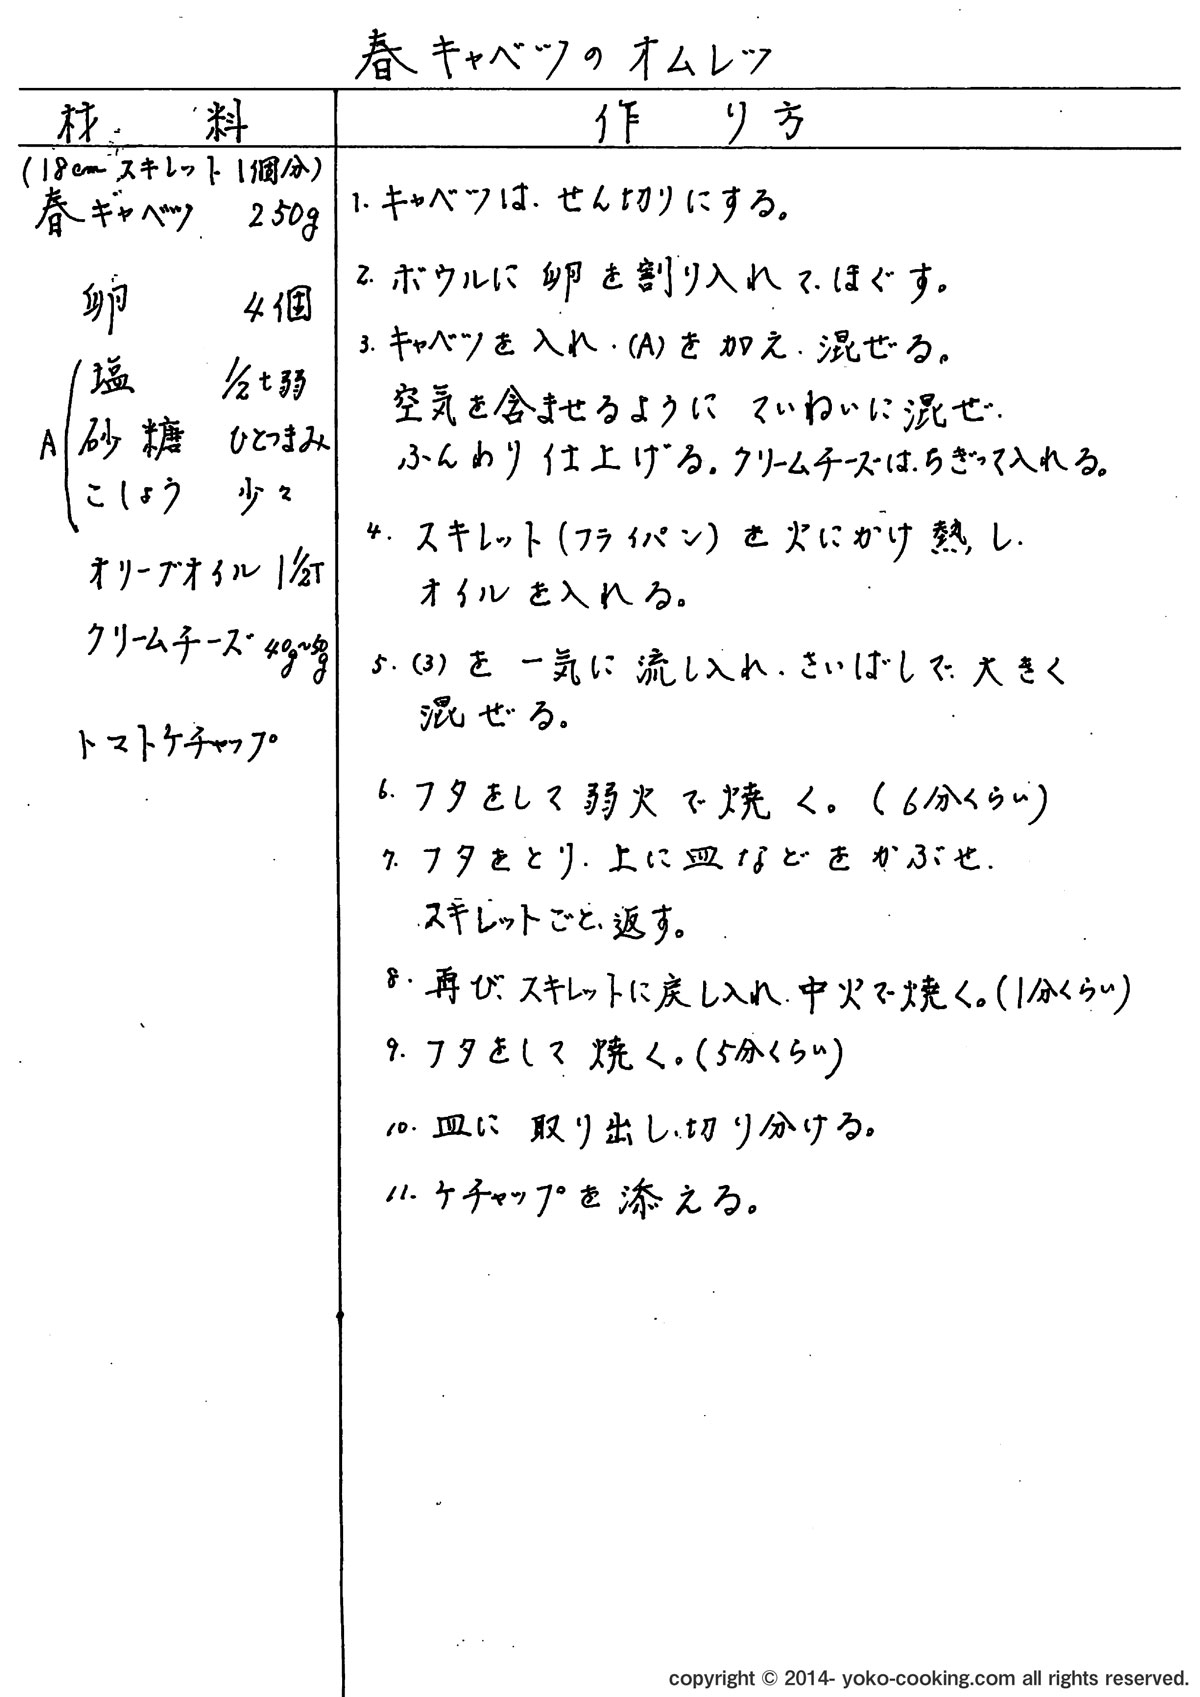 春キャベツのオムレツ
材 料
作 り 方
(18cmスキレット1個分)
春キャベツ 250g
卵 4個
A
塩 1/2t弱
砂糖 ひとつまみ
こしょう 少々
オリーブオイル 1 1/2T
クリームチーズ 40g~50g
トマトケチャップ
1. キャベツは、せん切りにする。
2. ボウルに卵を割り入れて、ほぐす。
3. キャベツを入れ、(A)を加え、混ぜる。
空気を含ませるように ていねいに混ぜ、
ふんわり仕上げる。クリームチーズは、ちぎって入れる。
4. スキレット(フライパン)を火にかけ熱し、
オイルを入れる。
5. (3)を一気に流し入れ、さいばしで、大きく
混ぜる。
6. フタをして弱火で焼く。(6分くらい)
7. フタをとり、上に皿などをかぶせ、
スキレットごと、返す。
8. 再び、スキレットに戻し入れ、中火で焼く。(1分くらい)
9. フタをして焼く。(5分くらい)
10. 皿に取り出し、切り分ける。
11. ケチャップを添える。
copyright © 2014- yoko-cooking.com all rights reserved.